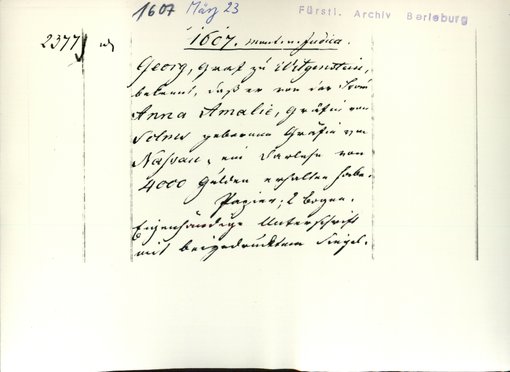 1607 März 23
Fürstl. Archiv Berleburg
2377
1607.
Georg, Graf zu Witgenstein,
bekennt, daß er von der Frau
Anna Amalie, Gräfin von
Solms geborenen Gräfin von
Nassau, ein Darlehn von
4000 Gulden erhalten habe.
Papier; 2 Bogen.
Eigenhändige Unterschrift
mit beigedrucktem Siegel.